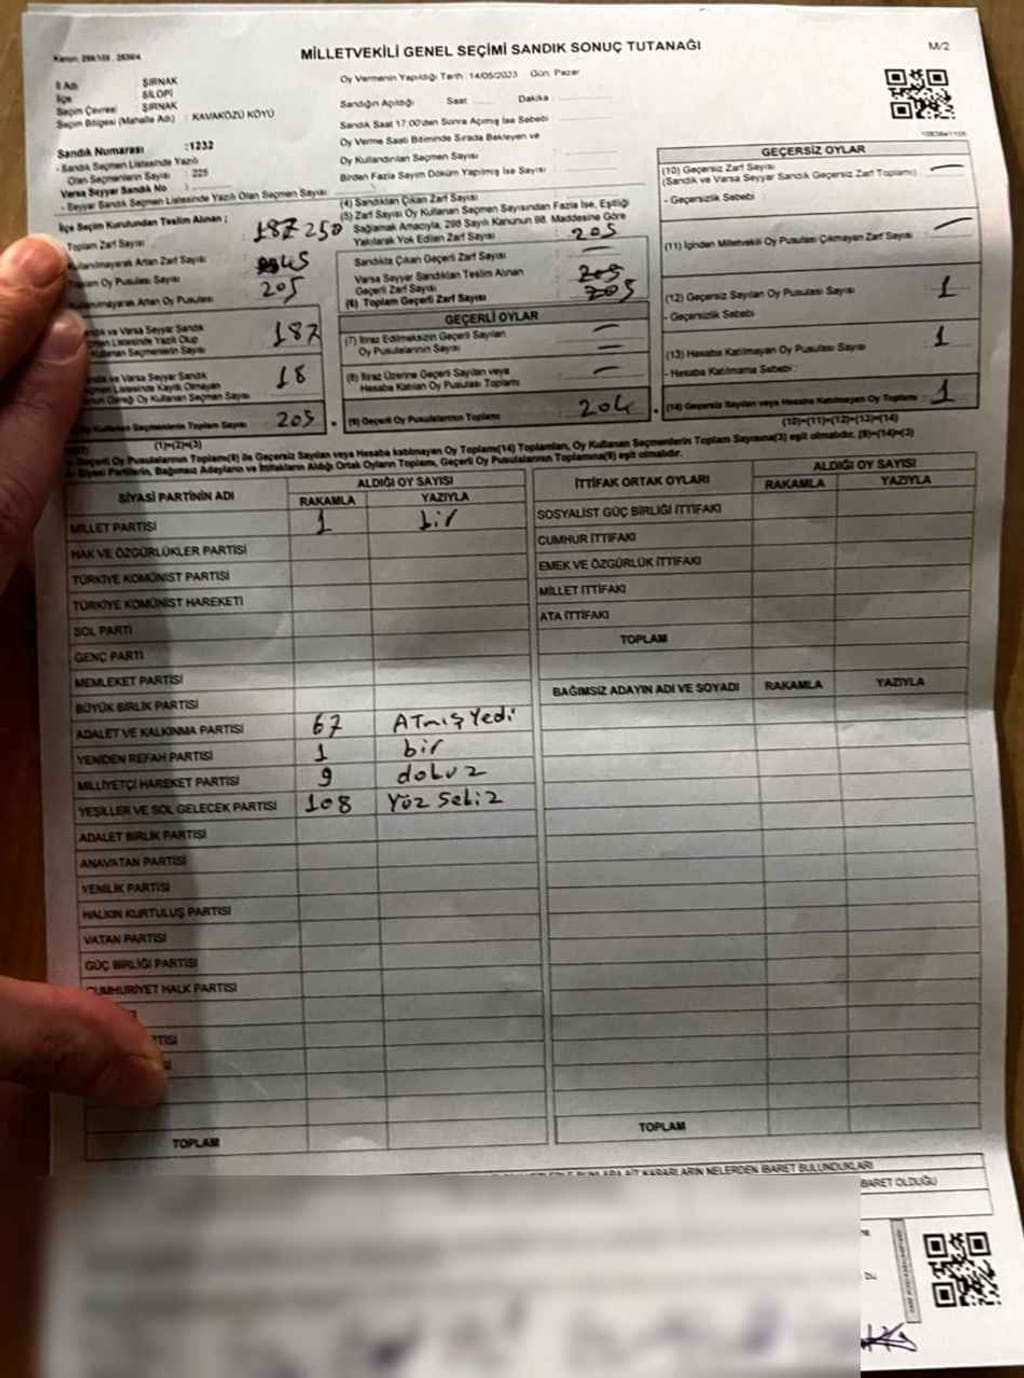 MİLLETVEKİLİ GENEL SEÇİMİ SANDIK SONUÇ TUTANAĞI
M/2
İl Adı : ŞIRNAK
İlçe : SİLOPİ
Seçim Çevresi : ŞIRNAK
Seçim Bölgesi (Mahalle Adı) : KAVAKÖZÜ KÖYÜ
Sandık Numarası :1232
- Sandık Seçmen Listesinde Yazılı
Olan Seçmenlerin Sayısı : 225
Varsa Seyyar Sandık No
- Seyyar Sandık Seçmen Listesinde Yazılı Olan Seçmen Sayısı
Oy Vermenin Yapıldığı Tarih :14/05/2023 Gün: Pazar
Sandığın Açıldığı Saat Dakika
Sandık Saat 17:00'den Sonra Açılmış İse Sebebi
Oy Verme Saati Bitiminde Sırada Bekleyen ve
Oy Kullandırılan Seçmen Sayısı
Birden Fazla Sayım Döküm Yapılmış İse Sayısı
İlçe Seçim Kurulundan Teslim Alınan ;
Toplam Zarf Sayısı : 187 250
Kullanılmayarak Artan Zarf Sayısı 45
Oy Pusulası Sayısı 205
Artan Oy Pusulası
ve Varsa Seyyar Sandık
Listesinde Yazılı Olup
Kullanan Seçmenlerin Sayısı 187
ve Varsa Seyyar Sandık
Listesinde Kayıtlı Olmayan
Oy Kullanan Seçmen Sayısı 18
Kullanan Seçmenlerin Toplam Sayısı 205
(1)+(2)=(3)
(4) Sandıktan Çıkan Zarf Sayısı
(5) Zarf Sayısı Oy Kullanan Seçmen Sayısından Fazla İse, Eşitliği
Sağlamak Amacıyla, 298 Sayılı Kanunun 98. Maddesine Göre
Yakılarak Yok Edilen Zarf Sayısı 205
Sandıkta Çıkan Geçerli Zarf Sayısı
Varsa Seyyar Sandıktan Teslim Alınan
Geçerli Zarf Sayısı 205
(6) Toplam Geçerli Zarf Sayısı 205
GEÇERLİ OYLAR
(7) İtiraz Edilmeksizin Geçerli Sayılan
Oy Pusulalarının Sayısı
(8) İtiraz Üzerine Geçerli Sayılan veya
Hesaba Katılan Oy Pusulası Toplamı
(9) Geçerli Oy Pusulalarının Toplamı 204
GEÇERSİZ OYLAR
(10) Geçersiz Zarf Sayısı
(Sandık ve Varsa Seyyar Sandık Geçersiz Zarf Toplamı)
- Geçersizlik Sebebi
(11) İçinden Milletvekili Oy Pusulası Çıkmayan Zarf Sayısı
(12) Geçersiz Sayılan Oy Pusulası Sayısı 1
- Geçersizlik Sebebi
(13) Hesaba Katılmayan Oy Pusulası Sayısı 1
- Hesaba Katılmama Sebebi
(14) Geçersiz Sayılan veya Hesaba Katılmayan Oy Toplamı 1
(10)+(11)+(12)+(13)=(14)
Geçerli Oy Pusulalarının Toplamı(9) ile Geçersiz Sayılan veya Hesaba katılmayan Oy Toplamı(14) Toplamları, Oy Kullanan Seçmenlerin Toplam Sayısına(3) eşit olmalıdır. (9)+(14)=(3)
Siyasi Partilerin, Bağımsız Adayların ve İttifakların Aldığı Ortak Oyların Toplamı, Geçerli Oy Pusulalarının Toplamına(9) eşit olmalıdır.
SİYASİ PARTİNİN ADI ALDIĞI OY SAYISI
RAKAMLA YAZIYLA
MİLLET PARTİSİ 1 bir
HAK VE ÖZGÜRLÜKLER PARTİSİ
TÜRKİYE KOMÜNİST PARTİSİ
TÜRKİYE KOMÜNİST HAREKETİ
SOL PARTİ
GENÇ PARTİ
MEMLEKET PARTİSİ
BÜYÜK BİRLİK PARTİSİ
ADALET VE KALKINMA PARTİSİ 67 ATmış Yedi
YENİDEN REFAH PARTİSİ 1 bir
MİLLİYETÇİ HAREKET PARTİSİ 9 dokuz
YEŞİLLER VE SOL GELECEK PARTİSİ 108 Yüz Sekiz
ADALET BİRLİK PARTİSİ
ANAVATAN PARTİSİ
YENİLİK PARTİSİ
HALKIN KURTULUŞ PARTİSİ
VATAN PARTİSİ
GÜÇ BİRLİĞİ PARTİSİ
CUMHURİYET HALK PARTİSİ
TOPLAM
İTTİFAK ORTAK OYLARI ALDIĞI OY SAYISI
RAKAMLA YAZIYLA
SOSYALİST GÜÇ BİRLİĞİ İTTİFAKI
CUMHUR İTTİFAKI
EMEK VE ÖZGÜRLÜK İTTİFAKI
MİLLET İTTİFAKI
ATA İTTİFAKI
TOPLAM
BAĞIMSIZ ADAYIN ADI VE SOYADI RAKAMLA YAZIYLA
TOPLAM
KARARLARIN NELERDEN İBARET BULUNDUKLARI
İBARET OLDUĞU